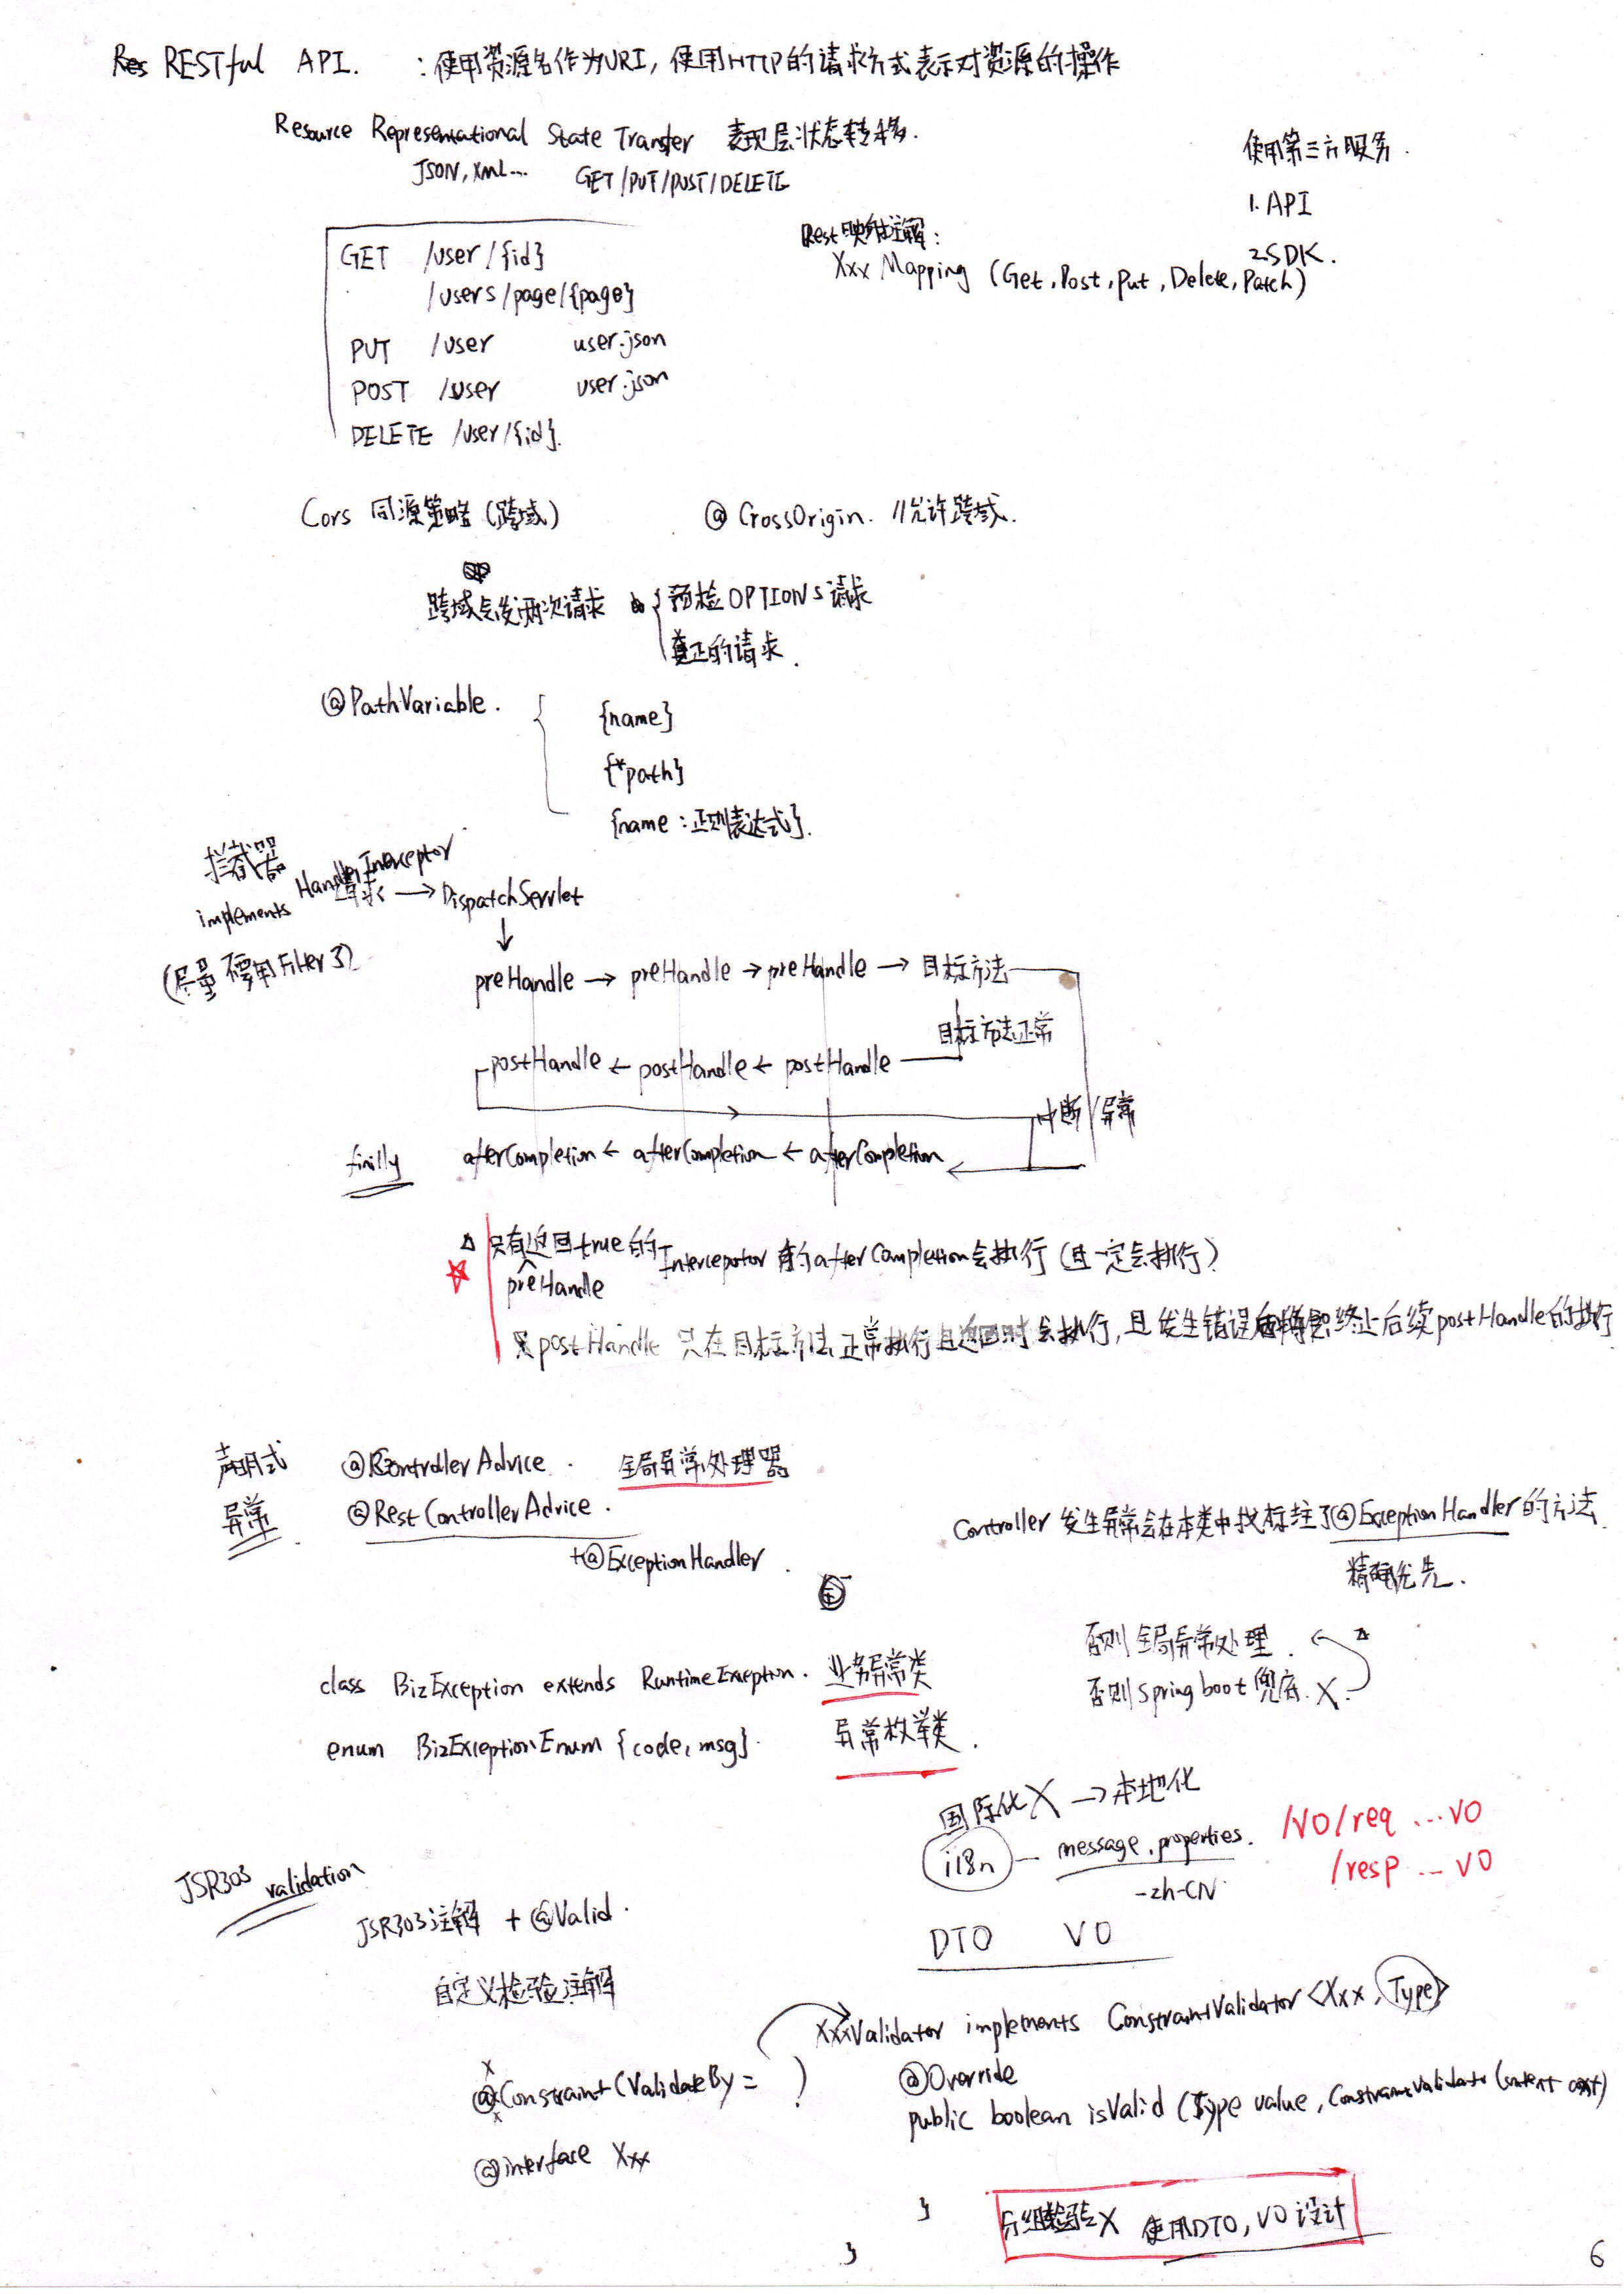 RESTful API. :使用资源名作为URI,使用HTTP的请求方式表示对资源的操作
Resource Representational State Transfer 表现层状态转移.
JSON, xml... GET/PUT/POST/DELETE
使用第三方服务.
1. API
2. SDK.
Rest映射注解:
Xxx Mapping (Get, Post, Put, Delete, Patch)
GET /user/{id}
/users/page/{page}
PUT /user user.json
POST /user user.json
DELETE /user/{id}.
Cors 同源策略(跨域) @CrossOrigin. //允许跨域.
跨域会发两次请求 { 预检OPTIONS请求
真正的请求.
@PathVariable. { {name}
{*path}
{name:正则表达式}.
拦截器
implements HandlerInterceptor
(尽量不要用Filter了)
请求 → DispatchServlet
↓
preHandle → preHandle → preHandle → 目标方法
目标方法正常
postHandle ← postHandle ← postHandle
中断/异常
finilly afterCompletion ← afterCompletion ← afterCompletion
只有返回true的Interceptor的afterCompletion会执行(且一定会执行)
preHandle
postHandle 只在目标方法正常执行且返回时会执行,且发生错误 终止后续postHandle的执行
声明式
异常
@ControllerAdvice. 全局异常处理器
@RestControllerAdvice.
+@ExceptionHandler.
Controller发生异常会在本类中找标注了@ExceptionHandler的方法
精确优先.
否则全局异常处理.
否则Spring boot兜底. X
class BizException extends RuntimeException. 业务异常类
enum BizExceptionEnum {code, msg}. 异常枚举类.
国际化X → 本地化
i18n — message.properties.
-zh-CN
/VO/req ...VO
/resp ...VO
DTO VO
JSR303 validation
JSR303注解 + @Valid.
自定义检验注解
@Constraint(ValidateBy = )
@interface Xxx
XxxValidator implements ConstraintValidator<Xxx, Type>
@Override
public boolean isValid (Type value, ConstraintValidatorContext)
}
分组检验X 使用DTO, VO设计
}
6